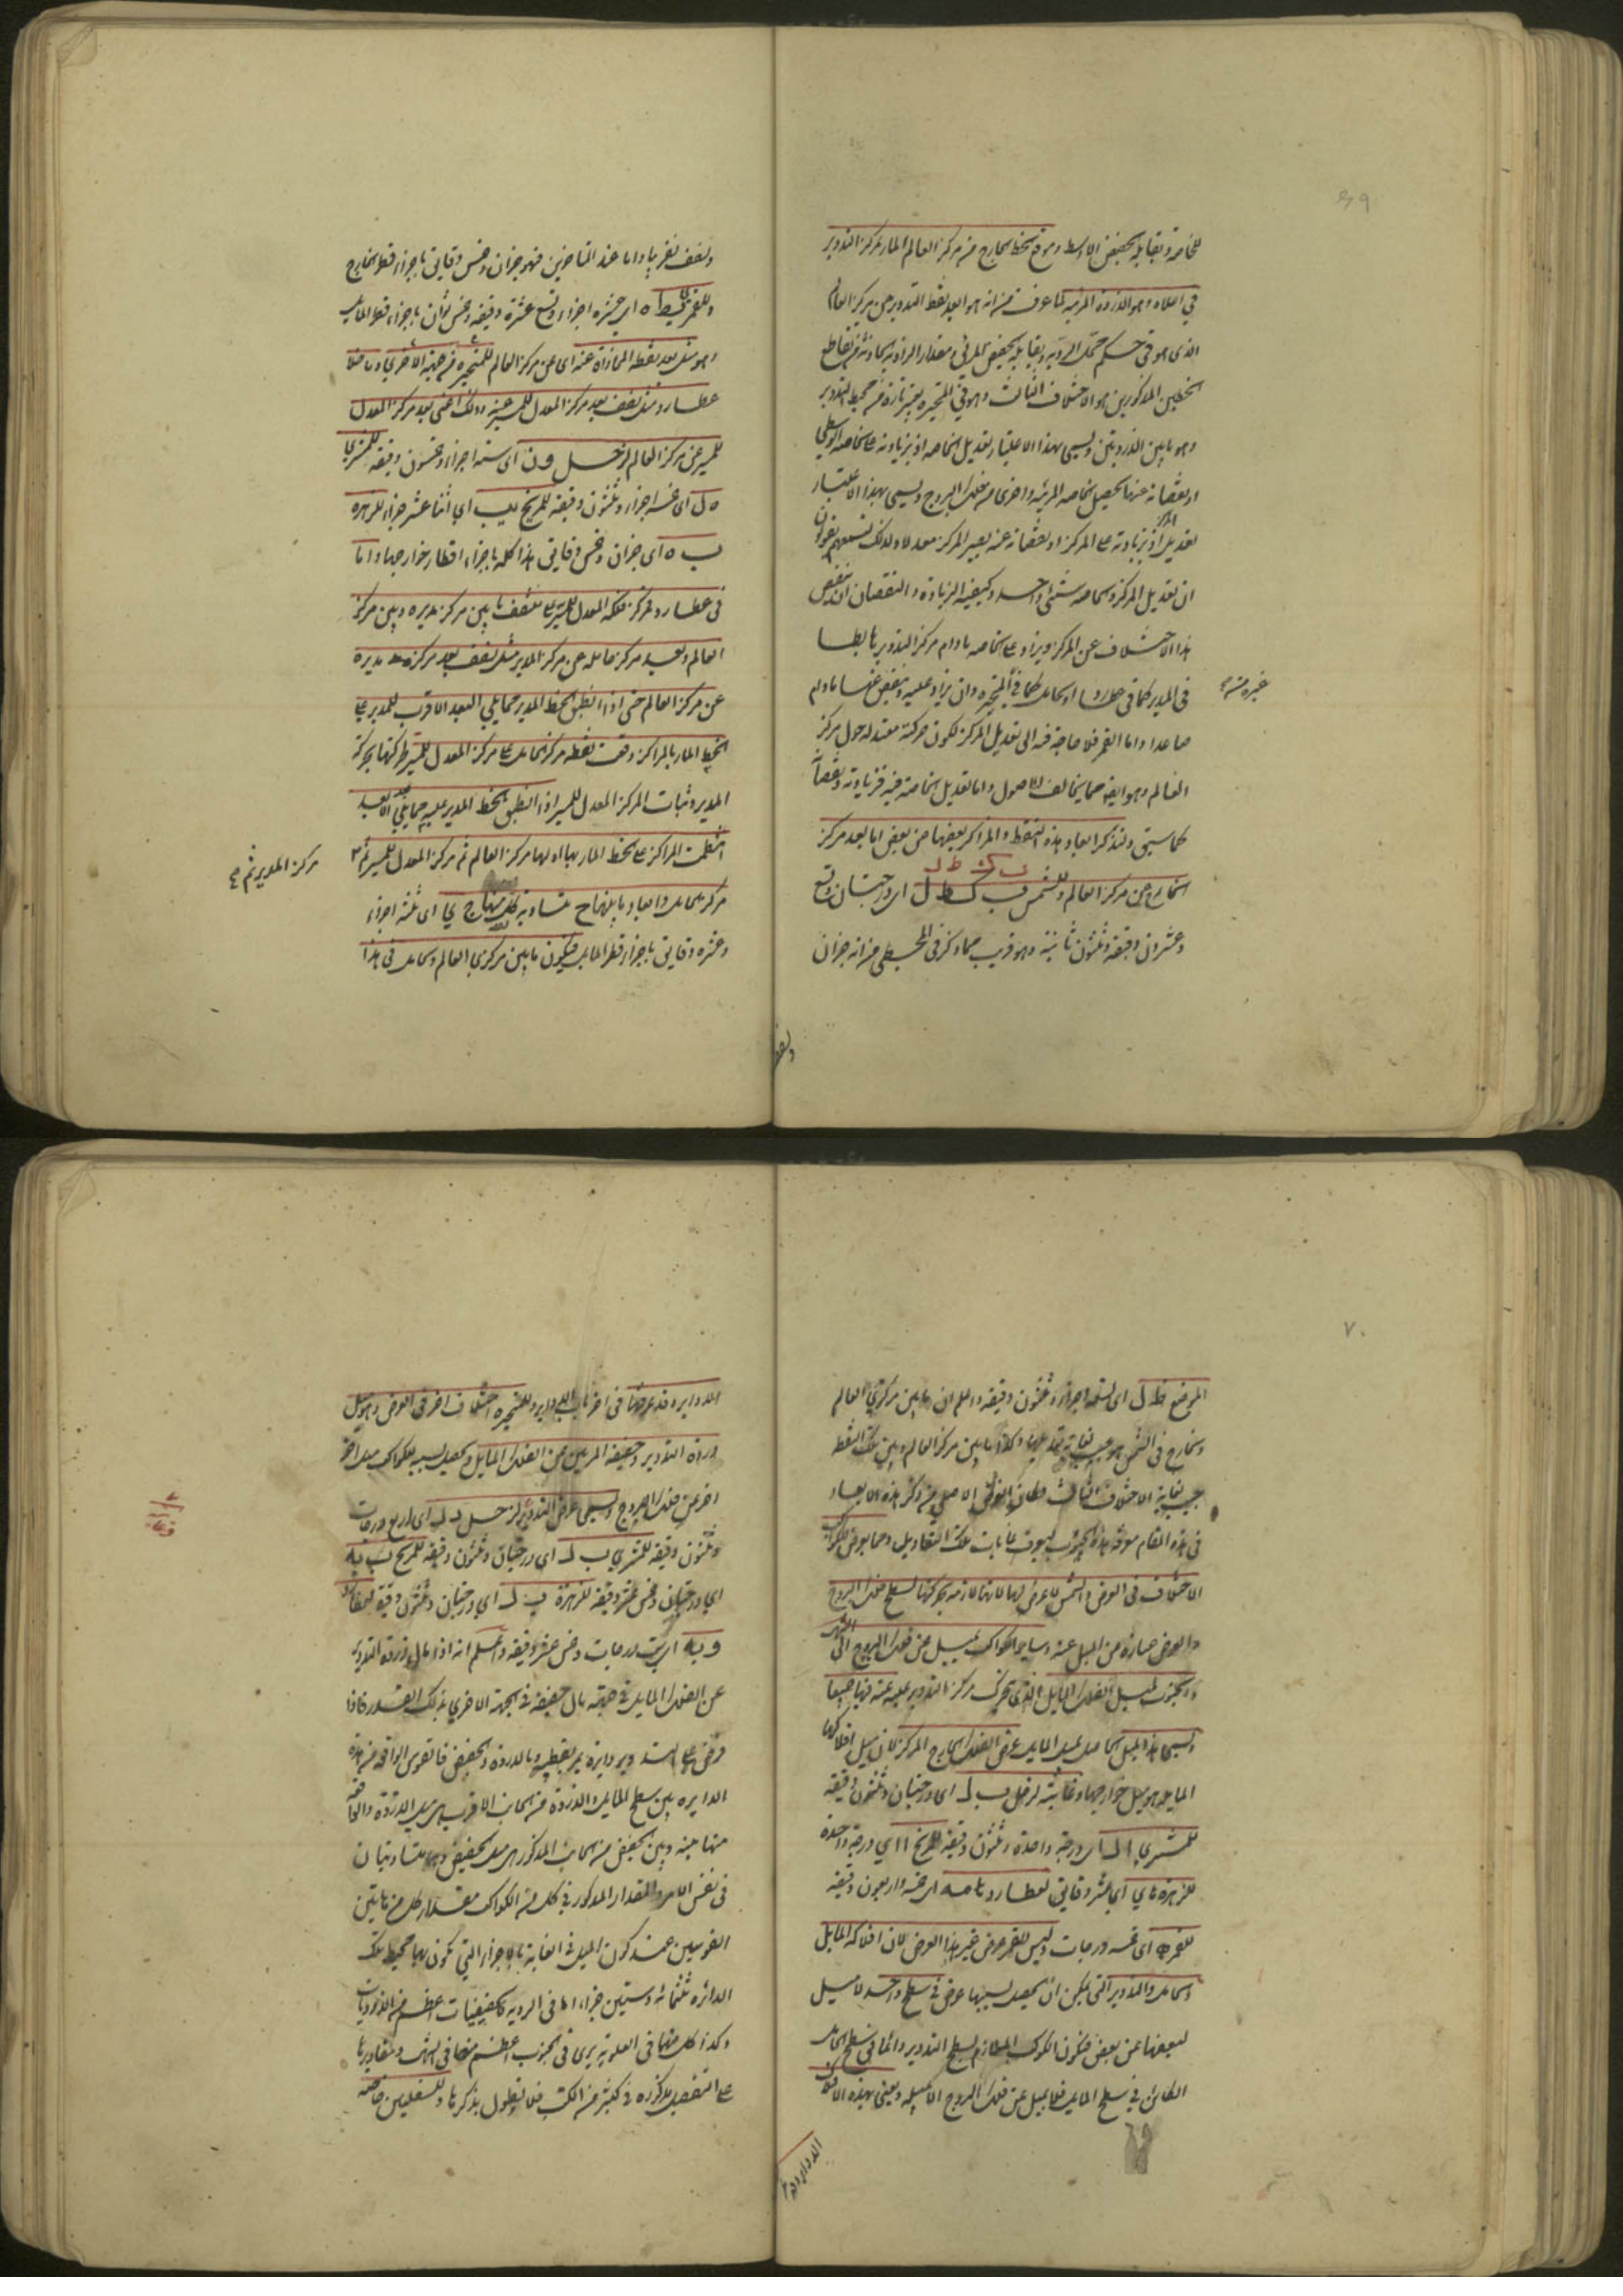 ٦٩
للخاصة ويقابله الحضيض الاوسط وموقع الخط الخارج من مركز العالم المار بمركز التدوير
في اعلاه وهو الذروة المرئية لما عرف من انه هو ابعد نقط التدوير عن مركز العالم
الذى هو فى حكم محل الروية ويقابله الحضيض المرئى ومقدار الزاوية الحادثة من تقاطع
الخطين المذكورين هو الاختلاف الثالث وهو فى المتحيرة يعتبر تارة من محيط التدوير
وهو ما بين الذروتين ويسمى بهذا الاعتبار تعديل الخاصة اذ بزيادته على الخاصة الوسطى
او نقصانه عنها يحصل الخاصة المرئية واخرى من فلك البروج ويسمى بهذا الاعتبار
تعديل المركز اذ بزيادته على المركز او نقصانه عنه يصير المركز معدلا ولذلك تسمعهم يقولون
ان تعديل المركز والخاصة شئ واحد وكيفية الزيادة والنقصان ان ينقص
هذا الاختلاف عن المركز ويزاد على الخاصة مادام مركز التدوير هابطا
فى المدير كما فى عطارد او الحامل كما فى المتحيرة وان يزاد عليه وينقص عنها مادام
غيره منه
صاعدا واما القمر فلا حاجة فيه الى تعديل المركز لكون حركته معتدلة حول مركز
العالم وهو ايضا مما يخالف الاصول واما تعديل الخاصة فيه فزيادته ونقصانه
كما سبق ولنذكر ابعاد هذه النقط والمراكز بعضها من بعض اما بعد مركز
ب كط ل
الخارج عن مركز العالم وللشمس ب كط ل اى درجتان وتسع
وعشرون دقيقة وثلثون ثانية وهو قريب مما ذكر فى المجسطى من انه جزان
ونصف
ونصف تقريبا واما عند المتاخرين فهو جزان وخمس دقايق باجزاء قطر الخارج
وللقمر ى يط ه اى عشرة اجزاء وتسع عشرة دقيقة وخمس ثوان باجزاء قطر المايل
وهو مثل بعد نقطة المحاذاة عنه اى عن مركز العالم للمتحيرة من جهة الاخرى وما خلا
عطارد مثل نصف بعد مركز المعدل للمسير عنه وذلك اعنى بعد مركز المعدل
للمسير عن مركز العالم لزحل و ن اى ستة اجزاء وخمسون دقيقة للمشترى
ه ل اى خمسة اجزاء وثلثون دقيقة للمريخ يب اى اثنا عشر جزءا للزهرة
ب ه اى جزان وخمس دقايق هذا كله باجزاء اقطار خوارجها واما
فى عطارد فمركز فلكه المعدل للمسير على منتصف ما بين مركز مديره وبين مركز
العالم وبعد مركز حامله عن مركز المدير مثل نصف بعد مركز مديره
عن مركز العالم حتى اذا انطبق الخط المدير مما يلى البعد الاقرب للمدير على
الخط المار بالمراكز وقعت نقطة مركز الحامل على مركز المعدل للمسير لحركتها بحركة
المدير وثبات المركز المعدل للمسير اذا انطبق الخط المدير عليه مما يلى البعد الابعد
انتظمت المراكز على الخط المار بها اولها مركز العالم ثم مركز المعدل للمسير ثم
مركز المدير ثم
مركز الحامل والابعاد ما بينها ح متساوية كل منها ج ى اى ثلثة اجزاء
وعشرة دقايق باجزاء قطر المايل فيكون ما بين مركزى العالم والحامل فى هذا
٧٠
الموضع ط ل اى تسعة اجزاء وثلثون دقيقة واعلم ان ما بين مركزى العالم
والخارج فى الشمس هو جيب غاية تعديلها وكذا ما بين مركز العالم وبين تلك النقط
جيب لغاية الاختلاف الثالث ولكان الغرض الاصلى من ذكر هذه الابعاد
فى هذه المقام معرفة هذه الجيوب ليعرف غايات تلك التعاديل ومما يعرض للكواكب
الاختلاف فى العرض والشمس لا عرض لها لانها لازمة بحركتها لسطح فلك البروج
والعرض عبارة عن الميل عنه وساير الكواكب يميل عن فلك البروج الى الشمال
والجنوب لميل الفلك المايل الذى يتحرك مركز التدوير عليه عنه فيها جميعا
ويسمى هذا الميل الحاصل لميل المايل عرض الفلك الخارج المركز لان ميل افلاكها
المايلة هو ميل خوارجها وغايته لزحل ب ل اى درجتان وثلثون دقيقة
للمشترى ا ل اى درجة واحدة وثلثون دقيقة للمريخ ا اى درجة واحدة
للزهرة ى اى عشر دقايق لعطارد مه اى خمسة واربعون دقيقة
للقمر ه اى خمسة درجات وليس للقمر عرض غير هذا العرض لان افلاكه المايل
والحامل والتدوير التى يمكن ان يحصل بسببها عرض فى سطح واحد لا ميل
لبعضها عن بعض فيكون الكوكب الملازم لسطح التدوير دائما فى سطح الحامل
الكائن فى سطح المايل فلا يميل عن فلك البروج الا بميله ويعنى بهذه الافلاك
الدواير وقد
الدواير وقد عرفتها فى اخر باب الدواير وللمتحيرة اختلاف اخر فى العرض وهو ميل
ذروة التدوير وحضيضه المرئيين عن الفلك المايل ويحصل بسببه للكواكب ميل اخر
اخر عن فلك البروج ويسمى عرض التدوير لزحل د ل اى اربع درجات
وثلثون دقيقة للمشترى ب ل اى درجتان وثلثون دقيقة للمريخ ب يه
اى درجتان وخمس عشرة دقيقة للزهرة ب ل اى درجتان وثلثون دقيقة لعطارد
و يه اى ست درجات وخمس عشرة دقيقة واعلم انه اذا مال ذروة التدوير
عن الفلك المايل فى جهة مال حضيضه فى الجهة الاخرى بذلك القدر فاذا
فرض على التدوير دايرة يمر بقطبيه وبالذروة والحضيض فالقوس الواقعة من هذه
الدايرة بين سطح المايل والذروة من الجانب الاقرب هى ميل الذروة والواقعة
منها بينه وبين الحضيض من الجانب المذكور هى ميل الحضيض وهما متساويتان
فى نفس الامر والمقدار المذكور فى كل من الكواكب مقدار كل من هاتين
القوسين عند كون الميل فى الغاية بالاجزاء التى يكون بها محيط تلك
الدائرة ثلثمائة وستين جزءا اما فى الروية فالحضيضيات اعظم من الذرويات
وكذا كل منهما فى العلوية يرى فى الجنوب اعظم منها فى الشمال ومقاديرها
على التفصيل مذكورة فى كثير من الكتب فلا نطول بذكرها وللسفليين خاصة